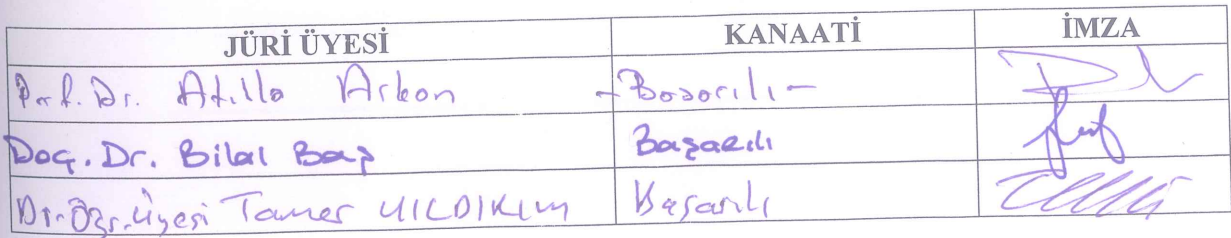 JÜRİ ÜYESİ KANAATİ İMZA
Prof. Dr. Atilla Arkan -Başarılı-
Doç. Dr. Bilal Baş Başarılı
Dr. Öğr. Üyesi Tamer YILDIRIM Başarılı